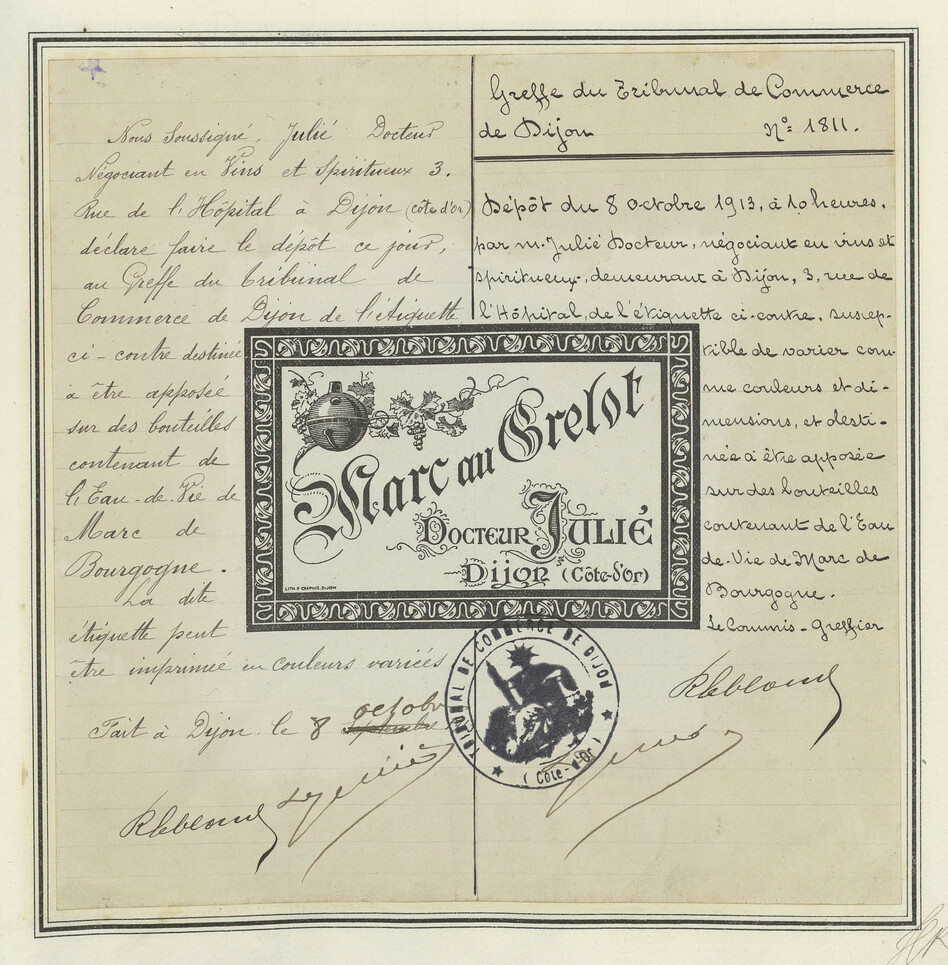 Nous Soussigné, Julié Docteur
Négociant en Vins et Spiritueux 3.
Rue de l'Hôpital à Dijon (côte d'or)
déclare faire le dépôt ce jour,
au Greffe du Tribunal de
Commerce de Dijon de l'étiquette
ci-contre destinée
à être apposée
sur des bouteilles
contenant de
l'Eau-de-Vie de
Marc de
Bourgogne.
La dite
étiquette peut
être imprimée en couleurs variées
Fait à Dijon le 8 octobre
Greffe du Tribunal de Commerce
de Dijon N°= 1811.
Dépôt du 8 octobre 1913, à 10 heures.
par m. Julié Docteur, négociant en vins et
spiritueux, demeurant à Dijon, 3, rue de
l'Hôpital, de l'étiquette ci-contre, suscep-
tible de varier com-
me couleurs et di-
mensions, et desti-
née à être apposée
sur des bouteilles
contenant de l'Eau
de-Vie de Marc de
Bourgogne.
Le Commis-Greffier
Marc au Grelot
Docteur Julié
Dijon (Côte-d'Or)
TRIBUNAL DE COMMERCE DE DIJON
(Côte-d'Or)